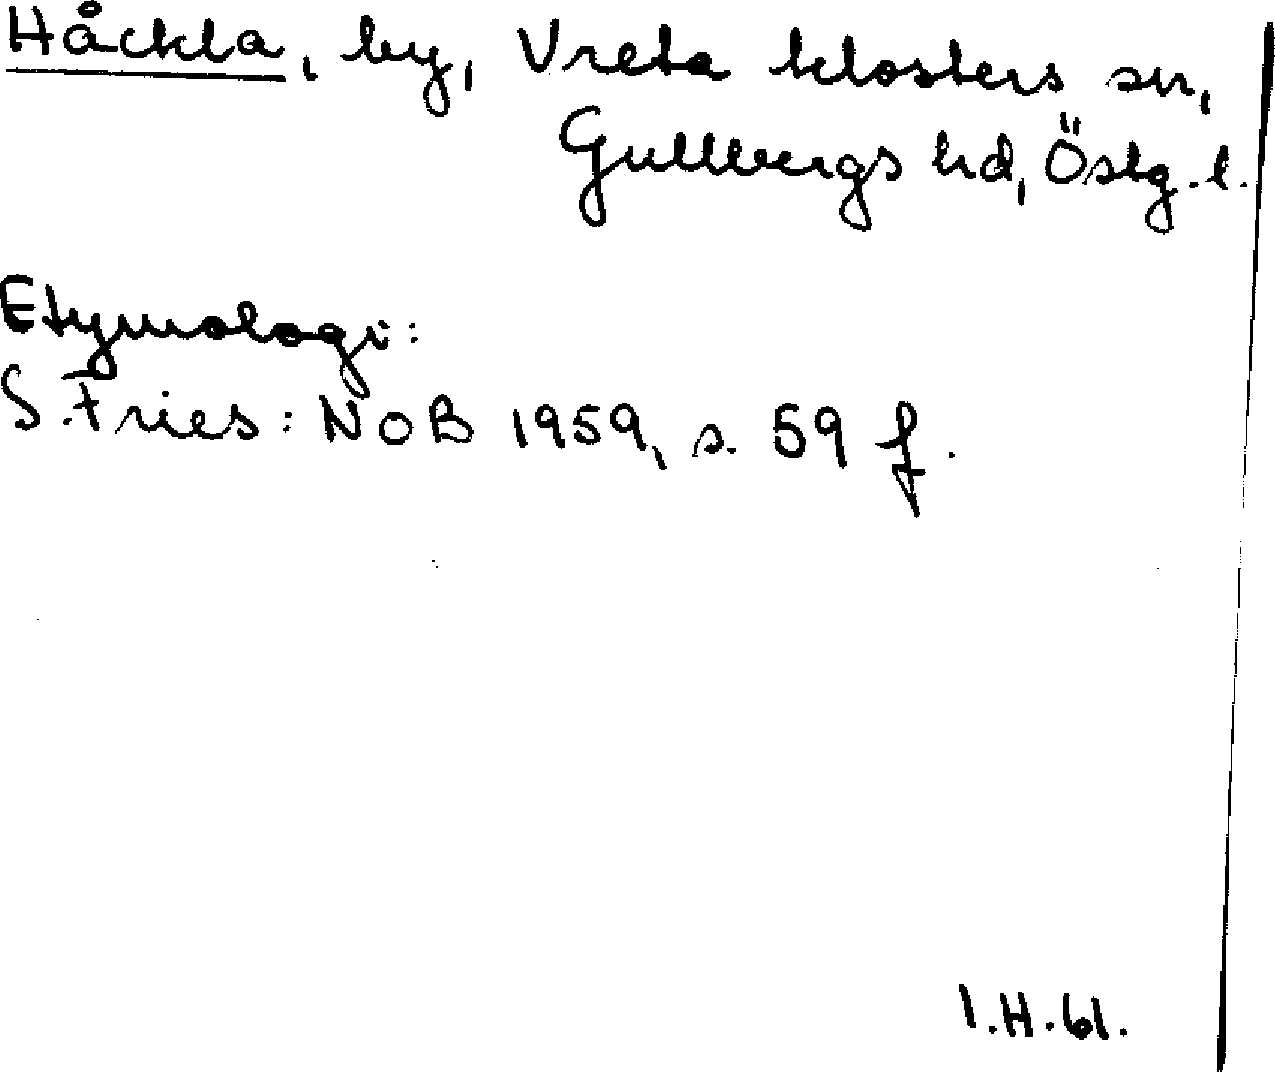 Håckla, by, Vreta klosters sn,
Gullbergs hd, Östg. l.
Etymologi:
S. Fries: NoB 1959, s. 59 f.
I.H. 61.